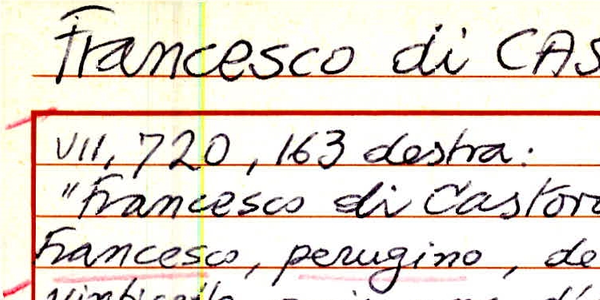 Francesco di CAS
VII, 720, 163 destra:
"Francesco di Castoro
Francesco, perugino, de